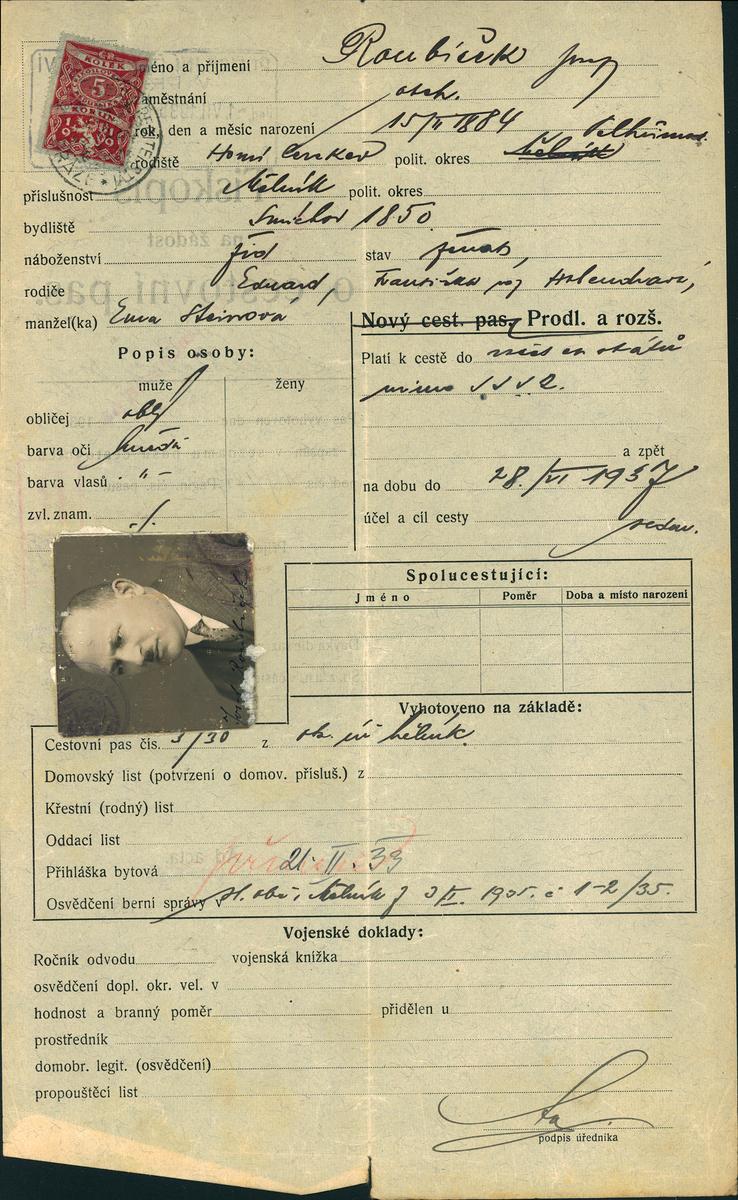 Jméno a příjmení Roubíček Josef
zaměstnání obch.
rok, den a měsíc narození 15/II 1884
rodiště Horní Cerekev polit. okres Mělník Pelhřimov
příslušnost Mělník polit. okres
bydliště Smíchov 1850
náboženství žid stav ženatý
rodiče Eduard, Františka roz. 
manžel(ka) Ema Steinová
Nový cest. pas, Prodl. a rozš.
Popis osoby:
muže ženy
obličej oblý
barva očí hnědá
barva vlasů -"-
zvl. znam. -/.
Platí k cestě do všech států
mimo SSSR.
a zpět
na dobu do 28./VI 1937
účel a cíl cesty
Spolucestující:
Jméno Poměr Doba a místo narození
Vyhotoveno na základě:
Cestovní pas čís. 3/30 z ok. úř. Mělník
Domovský list (potvrzení o domov. přísluš.) z
Křestní (rodný) list
Oddací list
Přihláška bytová 21. II. 33
Osvědčení berní správy v Mělník z 1935. č 1-2/35.
Vojenské doklady:
Ročník odvodu vojenská knížka
osvědčení dopl. okr. vel. v
hodnost a branný poměr přidělen u
prostředník
domobr. legit. (osvědčení)
propouštěcí list
podpis úředníka
KOLEK
5
KORUN